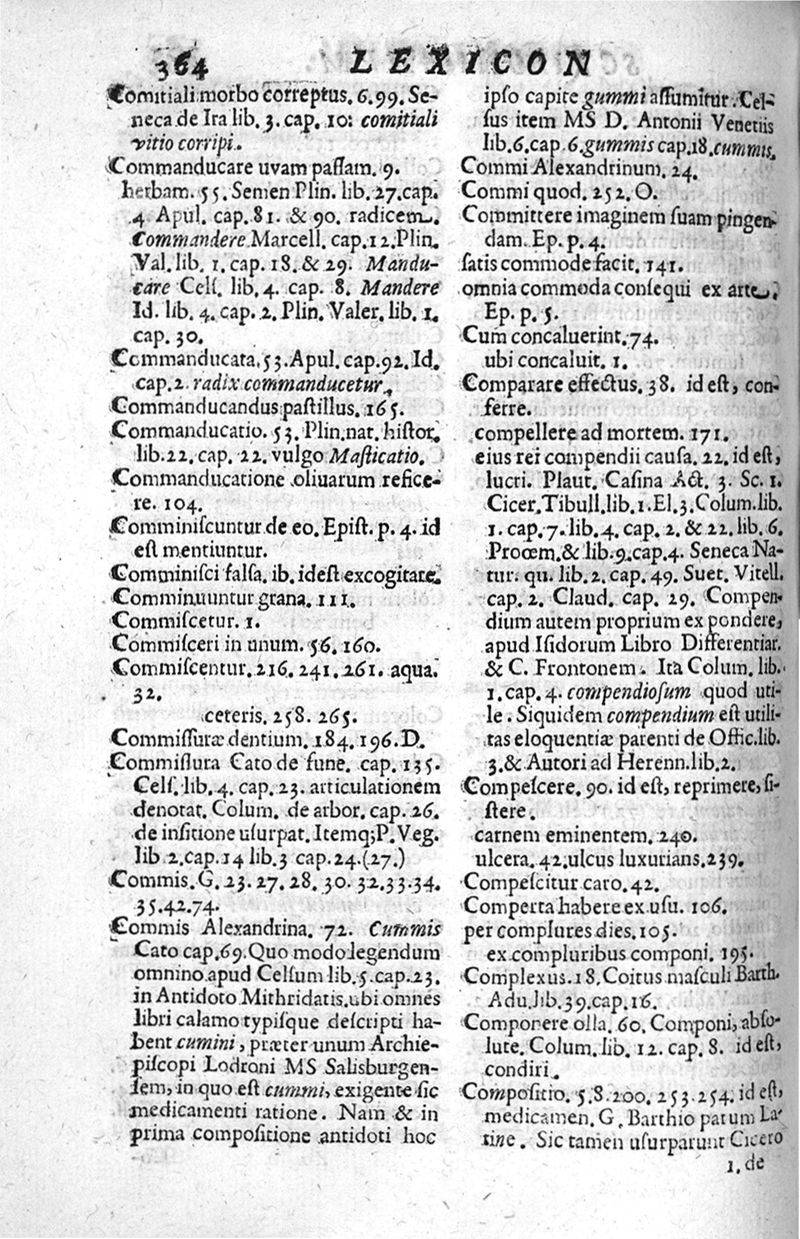 364 LEXICON
Comitiali morbo correptus. 6.99. Se-
neca de Ira lib. 3. cap. 10: comitiali
vitio corripi.
Commanducare uvam paſſam. 9.
herbam. 55. Semen Plin. lib. 27.cap.
4. Apul. cap. 81. & 90. radicem.
Commandere Marcell. cap.12.Plin.
Val. lib. 1. cap. 18. & 29. Mandu-
care Celſ. lib. 4. cap. 8. Mandere
Id. lib. 4. cap. 2. Plin. Valer. lib. 1.
cap. 30.
Commanducata, 53. Apul. cap.92. Id.
cap.2. radix commanducetur.
Commanducandus paſtillus. 165.
Commanducatio. 53. Plin.nat. hiſtor.
lib.22. cap. 22. vulgo Maſticatio.
Commanducatione olivarum refice-
re. 104.
Comminiſcuntur de eo. Epiſt. p. 4. id
eſt mentiuntur.
Comminiſci falſa. ib. ideſt excogitare.
Comminuuntur grana. 111.
Commiſcetur. 1.
Commiſceri in unum. 56. 160.
Commiſcentur. 216. 241. 261. aqua.
32.
ceteris. 258. 265.
Commiſſuræ dentium. 184. 196. D.
Commiſſura Cato de fune. cap. 135.
Celſ. lib. 4. cap. 23. articulationem
denotat. Colum. de arbor. cap. 26.
de inſitione uſurpat. Itemq; P. Veg.
lib 2.cap.14 lib.3 cap.24.(27.)
Commis. G. 23. 27. 28. 30. 32.33.34.
35.42.74.
Commis Alexandrina. 72. Cummis
Cato cap.69. Quo modo legendum
omnino apud Celſum lib. 5. cap.23.
in Antidoto Mithridatis.ubi omnes
libri calamo typiſque deſcripti ha-
bent cumini, præter unum Archie-
piſcopi Lodroni MS Salisburgen-
ſem, in quo eſt cummi, exigente ſic
medicamenti ratione. Nam & in
prima compoſitione antidoti hoc
ipſo capite gummi aſſumitur. Cel-
ſus item MS D. Antonii Venetiis
lib.6.cap.6.gummis cap.18.cummis.
Commi Alexandrinum. 24.
Commi quod. 252. O.
Committere imaginem ſuam pingen-
dam. Ep. p. 4.
ſatis commode facit. 141.
omnia commoda conſequi ex arte.
Ep. p. 5.
Cum concaluerint. 74.
ubi concaluit. 1.
Comparare effectus. 38. id eſt, con-
ferre.
compellere ad mortem. 171.
eius rei compendii cauſa. 22. id eſt,
lucri. Plaut. Caſina Act. 3. Sc. 1.
Cicer. Tibull. lib. 1. El. 3. Colum. lib.
1. cap. 7. lib. 4. cap. 2. & 22. lib. 6.
Proœm. & lib. 9. cap.4. Seneca Na-
tur. qu. lib. 2. cap. 49. Suet. Vitell.
cap. 2. Claud. cap. 29. Compen-
dium autem proprium ex pondere,
apud Iſidorum Libro Differentiar.
& C. Frontonem. Ita Colum. lib.
1. cap. 4. compendioſum quod uti-
le. Siquidem compendium eſt utili-
tas eloquentiæ parenti de Offic. lib.
3.& Autori ad Herenn. lib. 2.
Compeſcere. 90. id eſt, reprimere, ſi-
ſtere.
carnem eminentem. 240.
ulcera. 42. ulcus luxurians. 239.
Compeſcitur caro. 42.
Comperta habere ex uſu. 106.
per complures dies. 105.
ex compluribus componi. 195.
Complexus. 18. Coitus maſculi Barth.
Adu. lib. 39. cap. 16.
Componere olla. 60. Componi, abſo-
lute. Colum. lib. 12. cap. 8. id eſt,
condiri.
Compoſitio. 5.8.200. 253.254. id eſt,
medicamen. G. Barthio parum La-
tine. Sic tamen uſurparunt Cicero
1. de